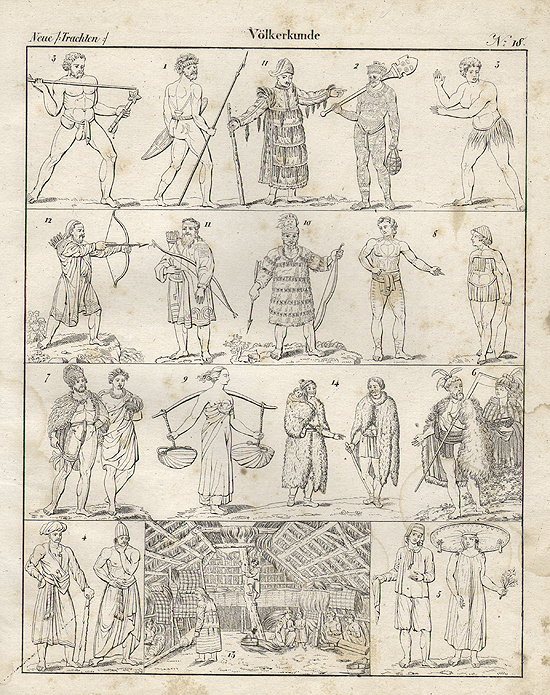 Neue /:Trachten:/ Völkerkunde N.º 18.
3 1 11 2 3
12 11 10 8
7 9 14 6
4 13 5